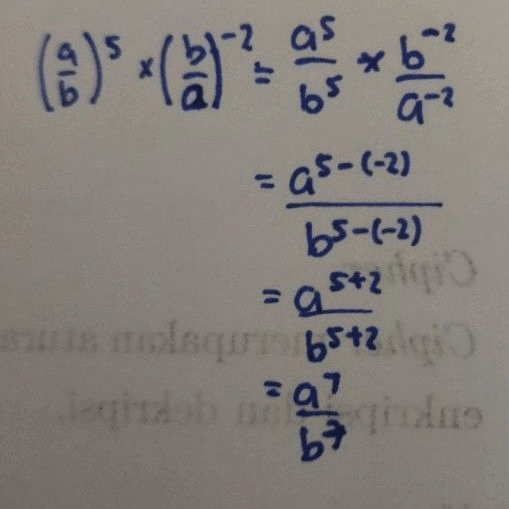 (a/b)^5 × (b/a)^-2 = a^5/b^5 × b^-2/a^-2
= a^5-(-2)/b^5-(-2)
= a^5+2/b^5+2
= a^7/b^7
Cipher
Cipher merupakan atura
enkripsi dan dekripsi.